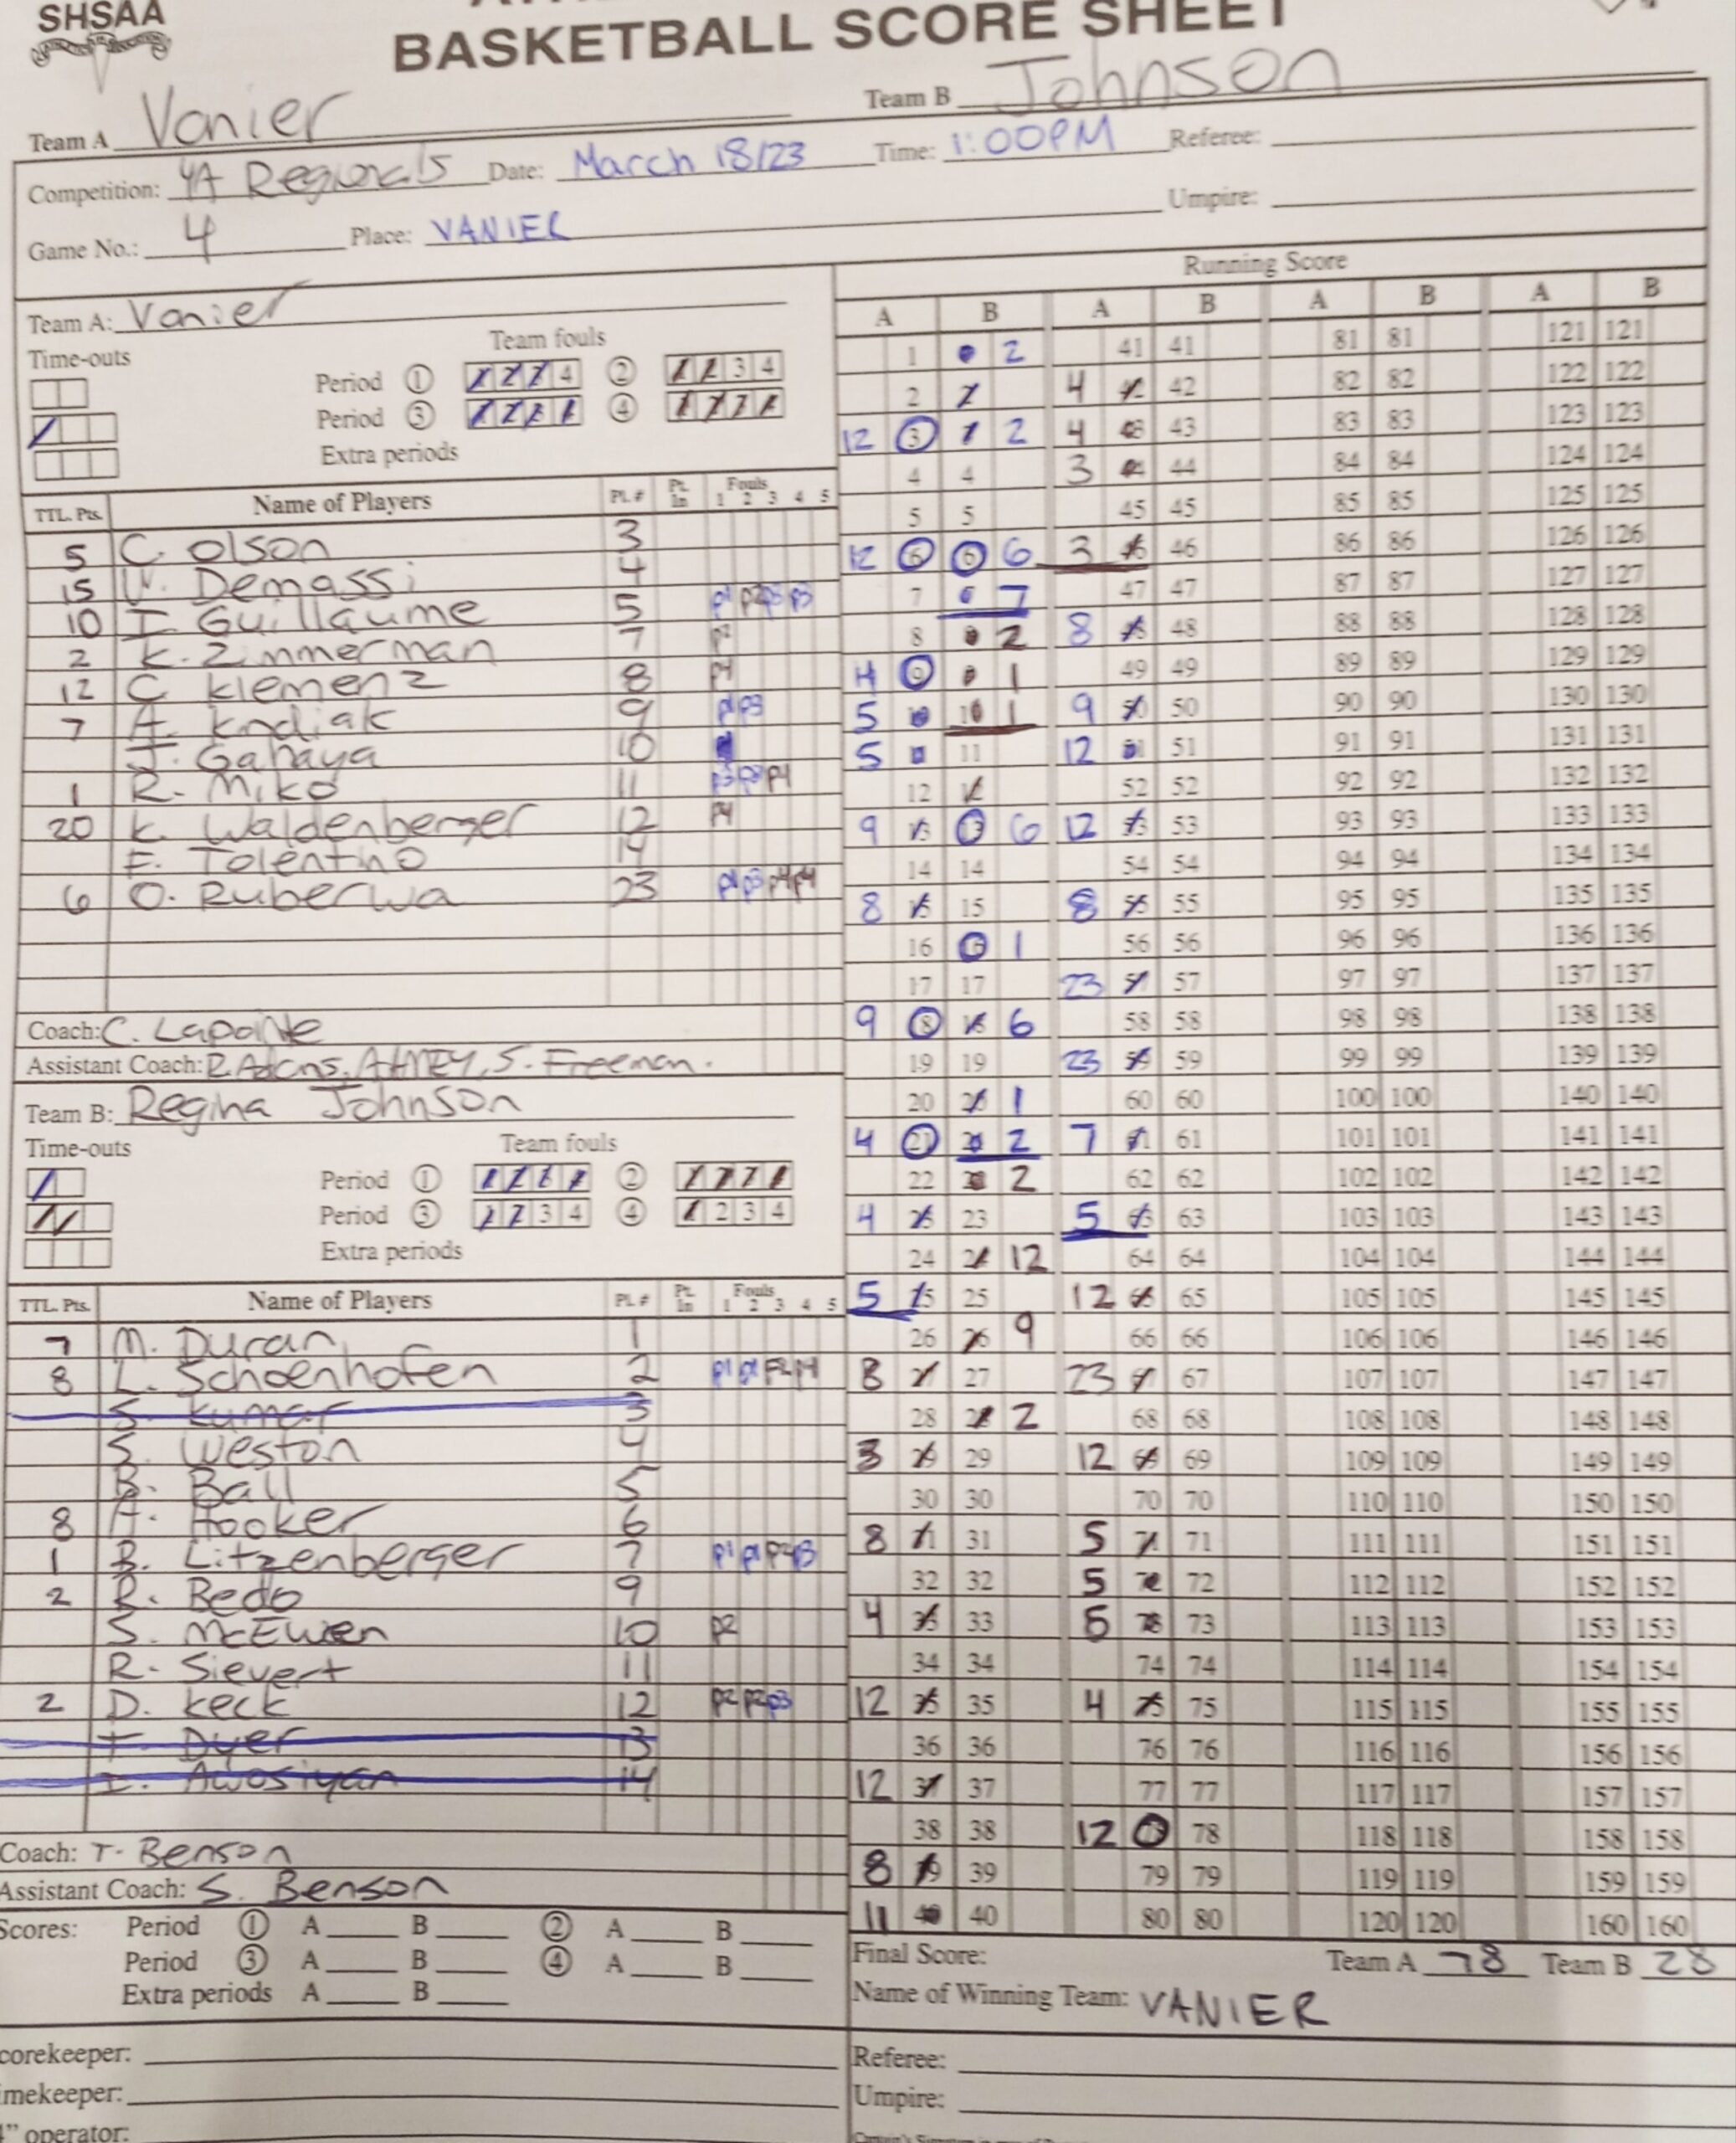 SHSAA
BASKETBALL SCORE SHEET
Team A Vanier Team B Johnson
Competition: 4A Regionals Date: March 18/23 Time: 1:00PM Referee:
Game No.: 4 Place: VANIER Umpire:
Running Score
Team A: Vanier
Time-outs Team fouls
Period 1 1 2 3 4 2 1 2 3 4
Period 3 1 2 3 4 4 1 2 3 4
Extra periods
TTL. Pts. Name of Players PL # Pt. In Fouls 1 2 3 4 5
5 C. Olson 3
15 Demassi 4
10 I. Guillaume 5 p1 p2 p3 p3
2 K. Zimmerman 7 p2
12 C Klemenz 8 p4
7 A. Kndiak 9 p1 p3
J. Gahaya 10
1 R. Miko 11 p3 p3 p4
20 K. Waldenberger 12 p4
F. Tolentino 14
6 O. Ruberwa 23 p1 p3 p4 p4
Coach: C. Lapointe
Assistant Coach: R. Adams, S. Freeman.
Team B: Regina Johnson
Time-outs Team fouls
Period 1 1 2 3 4 2 1 2 3 4
Period 3 1 2 3 4 4 1 2 3 4
Extra periods
TTL. Pts. Name of Players PL # Pt. In Fouls 1 2 3 4 5
7 M. Duran 1
8 L. Schoenhofen 2 p1 p1 p2 p4
S. Kumar 3
S. Weston 4
B. Ball 5
8 A. Hooker 6
1 B. Litzenberger 7 p1 p1 p2 p3
2 R. Bedo 9
S. McEwen 10 p2
R. Sievert 11
2 D. Keck 12 p2 p2 p3
T. Dyer 13
I. Awosiyan 14
Coach: T. Benson
Assistant Coach: S. Benson
Scores: Period 1 A B 2 A B
Period 3 A B 4 A B
Extra periods A B
corekeeper:
imekeeper:
" operator:
A B A B A B A B
1 2 41 41 81 81 121 121
2 4 42 82 82 122 122
12 3 2 4 43 43 83 83 123 123
4 4 3 44 84 84 124 124
5 5 45 45 85 85 125 125
12 6 6 6 3 46 86 86 126 126
7 7 47 47 87 87 127 127
8 2 8 48 88 88 128 128
4 9 1 49 49 89 89 129 129
5 10 10 1 9 50 50 90 90 130 130
5 11 12 51 51 91 91 131 131
12 12 52 52 92 92 132 132
9 13 13 6 12 53 53 93 93 133 133
14 14 54 54 94 94 134 134
8 15 15 8 55 55 95 95 135 135
16 16 1 56 56 96 96 136 136
17 17 23 57 57 97 97 137 137
9 18 18 6 58 58 98 98 138 138
19 19 23 59 59 99 99 139 139
20 20 1 60 60 100 100 140 140
4 21 21 2 7 61 61 101 101 141 141
22 22 2 62 62 102 102 142 142
4 23 23 5 63 63 103 103 143 143
24 24 12 64 64 104 104 144 144
5 25 25 12 65 65 105 105 145 145
26 26 9 66 66 106 106 146 146
8 27 27 23 67 67 107 107 147 147
28 28 2 68 68 108 108 148 148
3 29 29 12 69 69 109 109 149 149
30 30 70 70 110 110 150 150
8 31 31 5 71 71 111 111 151 151
32 32 5 72 72 112 112 152 152
4 33 33 5 73 73 113 113 153 153
34 34 74 74 114 114 154 154
12 35 35 4 75 75 115 115 155 155
36 36 76 76 116 116 156 156
12 37 37 77 77 117 117 157 157
38 38 12 78 78 118 118 158 158
8 39 39 79 79 119 119 159 159
11 40 40 80 80 120 120 160 160
Final Score: Team A 78 Team B 28
Name of Winning Team: VANIER
Referee:
Umpire: